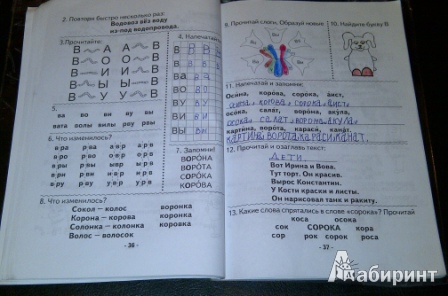 2. Повтори быстро несколько раз:
Водовоз вёз воду
из-под водопровода.
3. Прочитайте.
В А А В
В О О В
В И И В
В Ы Ы В
В У У В
4. Напечатай
В
ВА
ВО
ВУ
ВИ
ВЫ
5.
ва во ви ну вы
вата полы вилы рву рвы
6. Что изменилось?
7. Запомни!
ВОРО́НА
ВОРО́ТА
СОРО́КА
КОРО́ВА
8. Что изменилось?
Сокол – колос воронка
Корона – корова коровка
Солонка – колонка коровка
Волос – волосок
- 36 -
9. Прочитай слоги. Образуй новые
10. Найдите букву В
11. Напечатай и запомни:
Оси́на, коро́ва, соро́ка, а́ист,
осина, корова, сорока, аист,
осо́ка, сала́т, воро́на, аку́ла,
осока, салат, ворона, акула,
карти́на, воро́та, кара́си, кана́т.
картина, ворота, караси, канат.
12. Прочитай и озаглавь текст:
Дети.
Вот Ирина и Вова.
Тут торт. Он красив.
Вырос Константин.
У Кости краски и листы.
Он нарисовал танк и ракиту.
13. Какие слова спрятались в слове «сорока»? Прочитай
коса осока
сок СОРОКА кора
сор рок сорок роса
- 37 -
Лабиринт